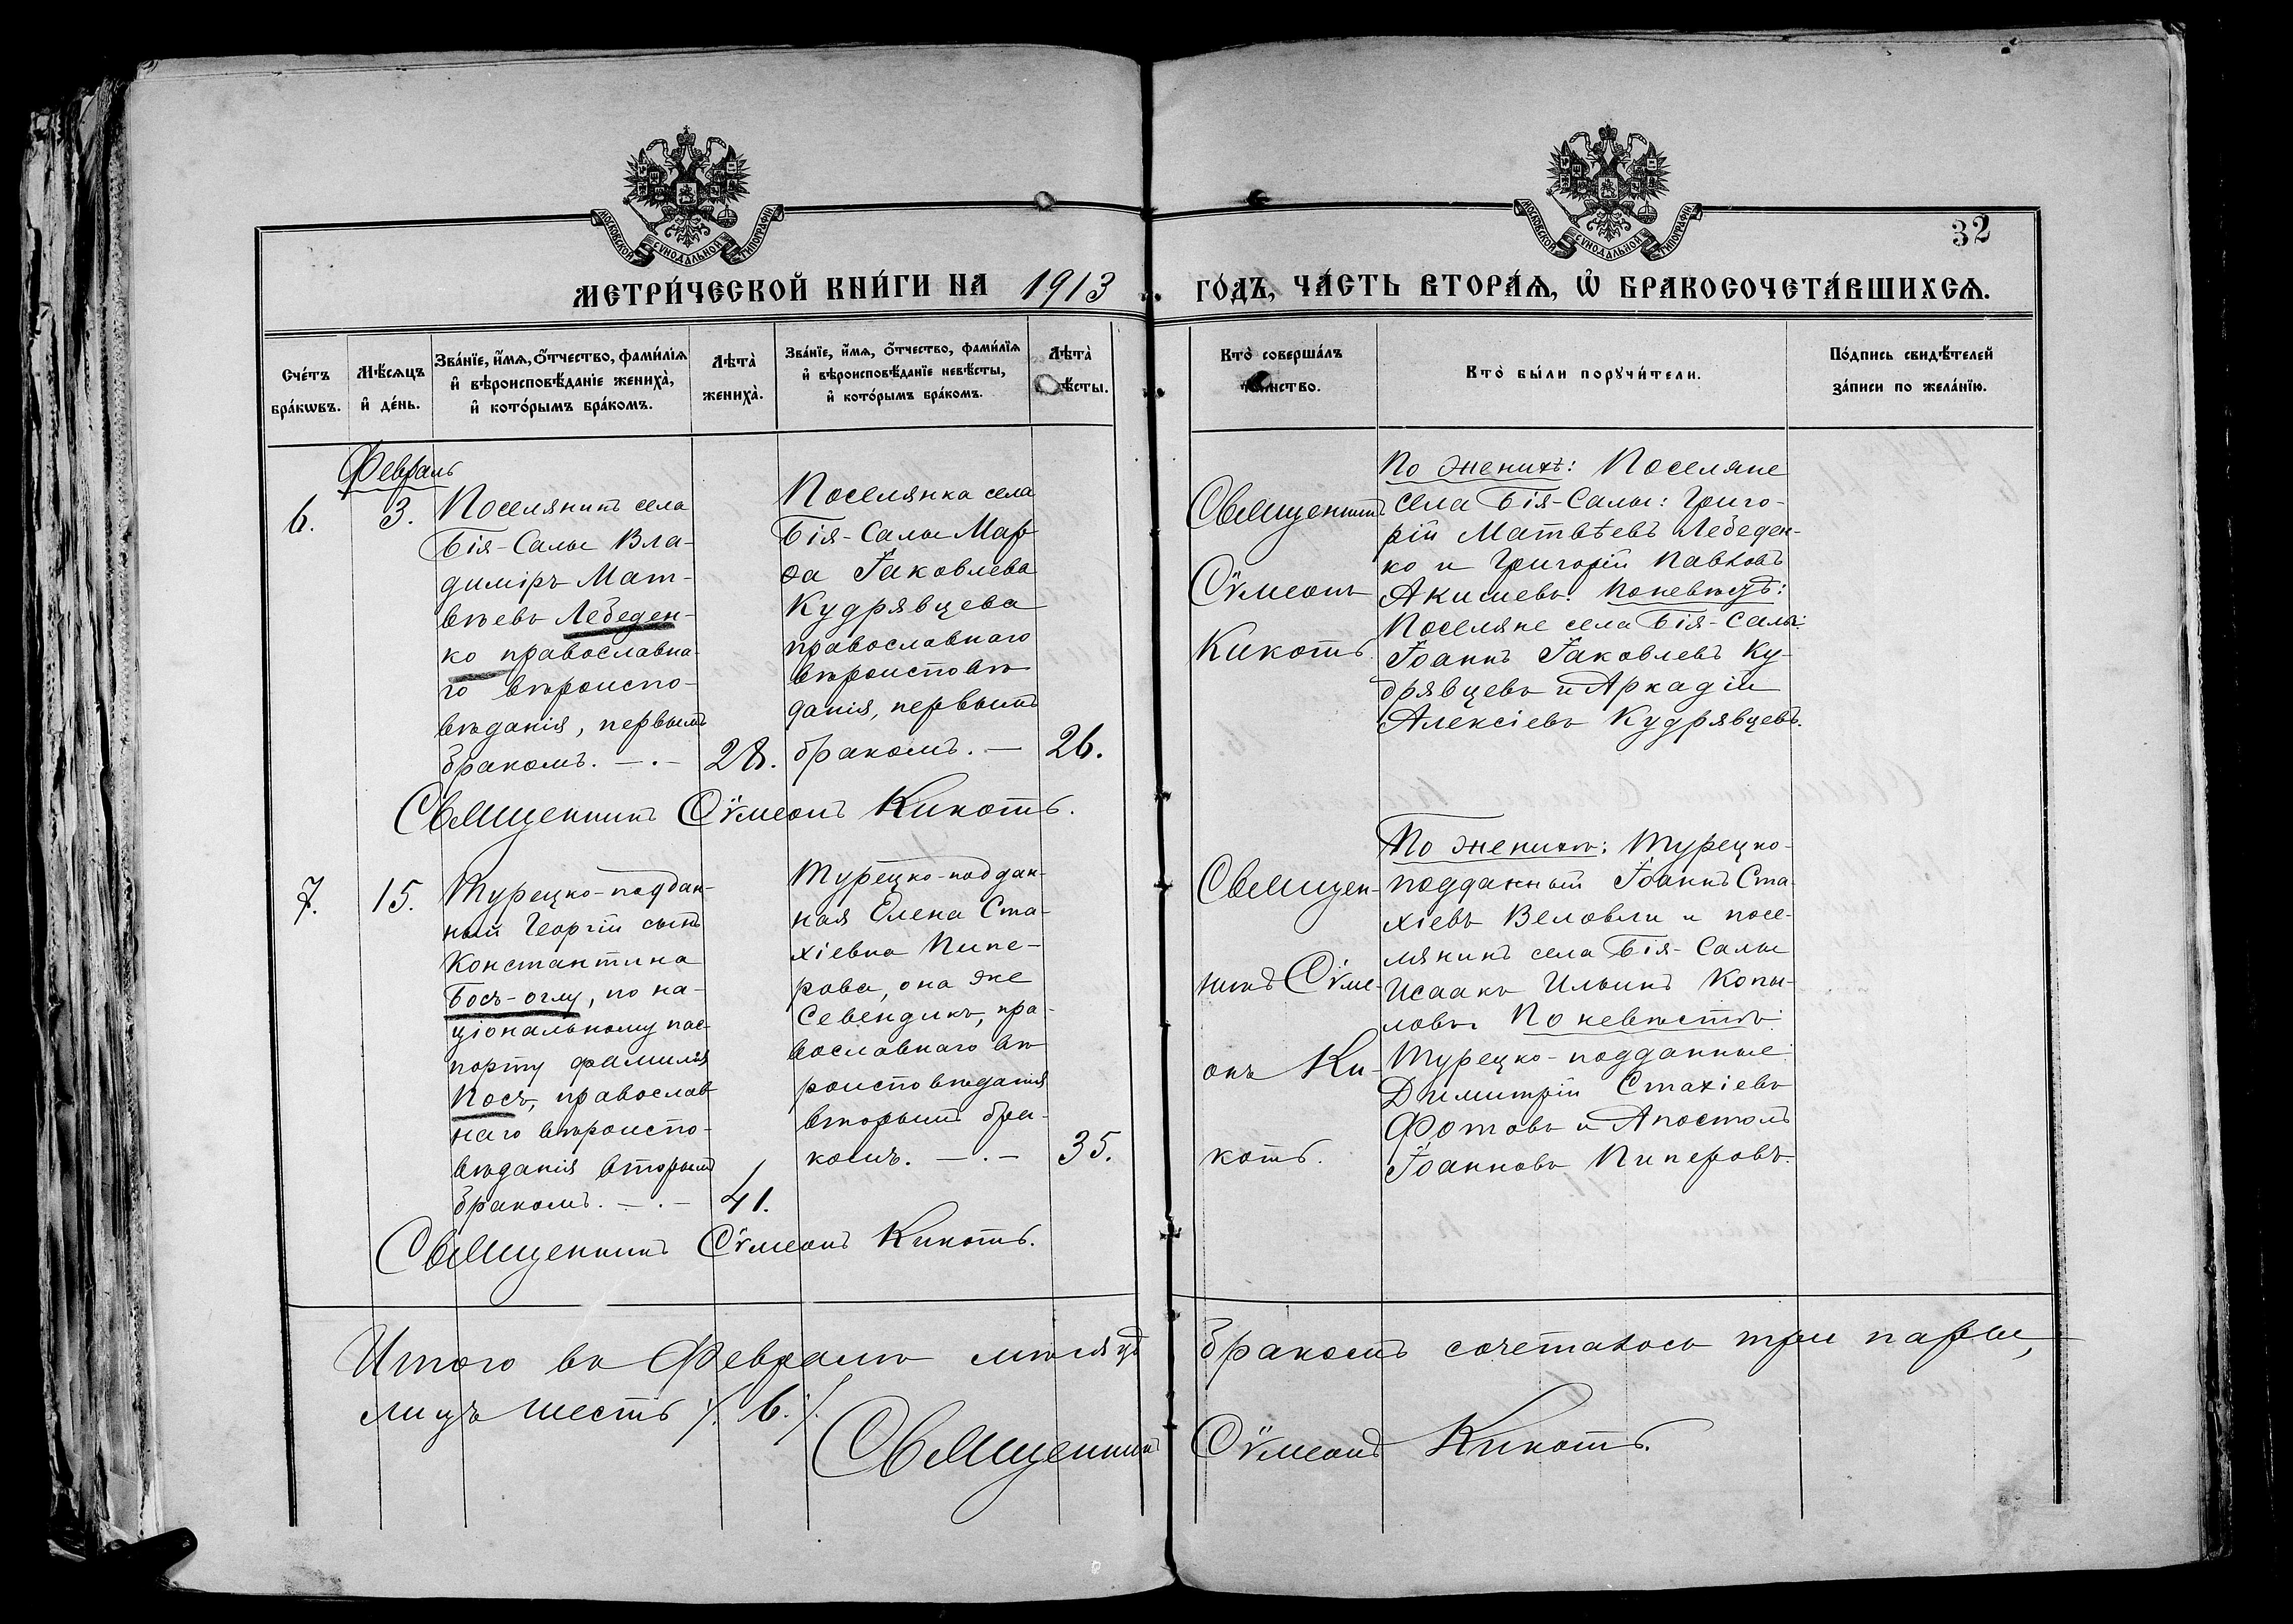 МОСКОВСКОЙ СѴНОДАЛЬНОЙ ТИПОГРАФІИ
МОСКОВСКОЙ СѴНОДАЛЬНОЙ ТИПОГРАФІИ
32
МЕТРИ́ЧЕСКОЙ КНИ́ГИ НА 1913 ГО́ДЪ, ЧА́СТЬ ВТОРА́Ѧ, Ѡ҆ БРАКОСОЧЕТА́ВШИХСѦ.
Сче́тъ
бра́кѡвъ.
Мѣ́сѧцъ
и҆ де́нь.
Зва́нїе, и҆́мѧ, ѻ҆́тчество, фами́лїѧ
и҆ вѣроисповѣ́данїе жениха̀,
и҆ кото́рымъ бра́комъ.
Лѣта̀
жениха̀.
Зва́нїе, и҆́мѧ, ѻ҆́тчество, фами́лїѧ
и҆ вѣроисповѣ́данїе невѣ́сты,
и҆ кото́рымъ бра́комъ.
Лѣта̀
невѣ́сты.
Кто̀ соверша́лъ
таинство.
Кто̀ бы́ли порꙋчи́тели.
По́дпись свидѣ́телей
за́писи по жела́нїю.
Февраль
6.
3.
Поселянинъ села
Бія-Салы Вла-
диміръ Мат-
вѣевъ Лебеден-
ко православна-
го вѣроиспо-
вѣданія, первымъ
бракомъ. —.—
28.
Поселянка села
Бія-Салы Мар-
ѳа Іаковлева
Кудрявцева
православнаго
вѣроисповѣ
данія, первымъ
бракомъ. —
26.
Священникъ
Сѵмеонъ
Кикоть
По женихѣ: Поселяне
села Бія-Салы: Григо-
рій Матвѣевъ Лебеден-
ко и Григорій Павловъ
Акишевъ. По невѣстѣ:
Поселяне села Бія-Салы:
Іоаннъ Іаковлевъ Ку-
дрявцевъ и Аркадій
Алексіевъ Кудрявцевъ.
Священникъ Сѵмеонъ Кикоть.
7.
15.
Турецко-поддан-
ный Георгій сынъ
Константина
Босъ-оглу, по на-
ціональному пас-
порту фамилія
Посъ, православ
наго вѣроиспо-
вѣданія вторымъ
бракомъ. —.—
41.
Турецко-поддан-
ная Елена Ста-
хіевна Пипе-
рова, она же
Севендикъ, пра-
вославнаго вѣ
роисповѣданія
вторымъ бра-
комъ. —.—
35.
Священ-
никъ Сѵме-
онъ Ки-
коть.
По женихѣ: Турецко-
подданный Іоаннъ Ста-
хіевъ Веловли и посе-
лянинъ села Бія-Салы
Исаакъ Ильинъ Копы-
ловъ. По невѣстѣ:
Турецко-подданные
Димитрій Стахіевъ
Фотовъ и Апостолъ
Іоанновъ Пиперовъ.
Священникъ Сѵмеонъ Кикоть.
Итого въ Февралѣ мѣсяцѣ бракомъ сочеталось три пары,
лицъ шесть /. 6. /.
Священникъ Сѵмеонъ Кикоть.